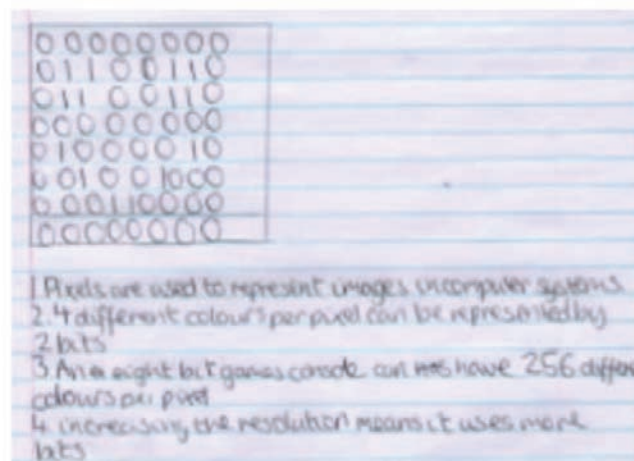 0 0 0 0 0 0 0 0
0 1 1 0 0 1 1 0
0 1 1 0 0 1 1 0
0 0 0 0 0 0 0 0
0 1 0 0 0 0 1 0
0 0 1 0 0 1 0 0 0
0 0 0 1 1 0 0 0 0
0 0 0 0 0 0 0 0
1 Pixels are used to represent images in computer systems
2. 4 different colours per pixel can be represented by
2 bits
3 An eight bit games console can have 256 differen
colours per pixel
4 increasing the resolution means it uses more
bits